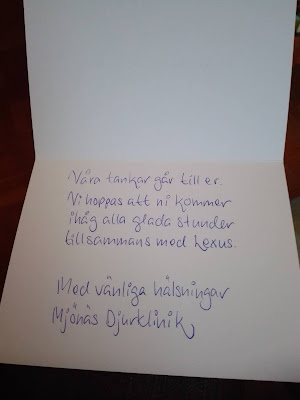 Våra tankar går till er.
Vi hoppas att ni kommer
ihåg alla glada stunder
tillsammans med Lexus.
Med vänliga hälsningar
Mjönäs Djurklinik